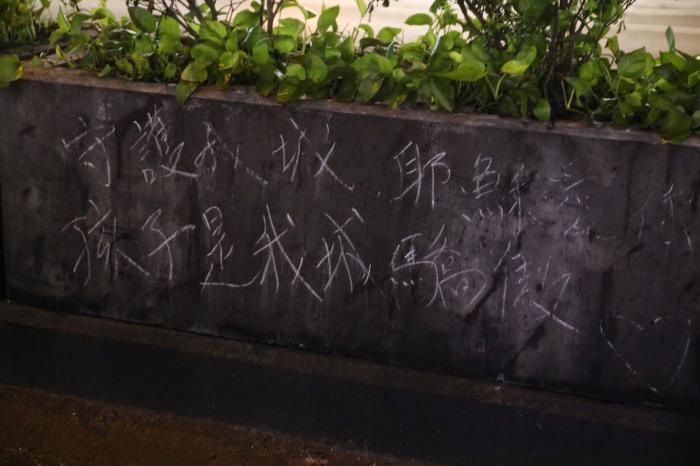 守護我城 耶穌
孩子是我城驕傲